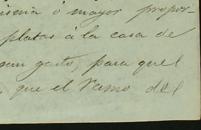 misma ó mayor propor-
platas á la casa de
gran gasto, para que el
que el Ramo del